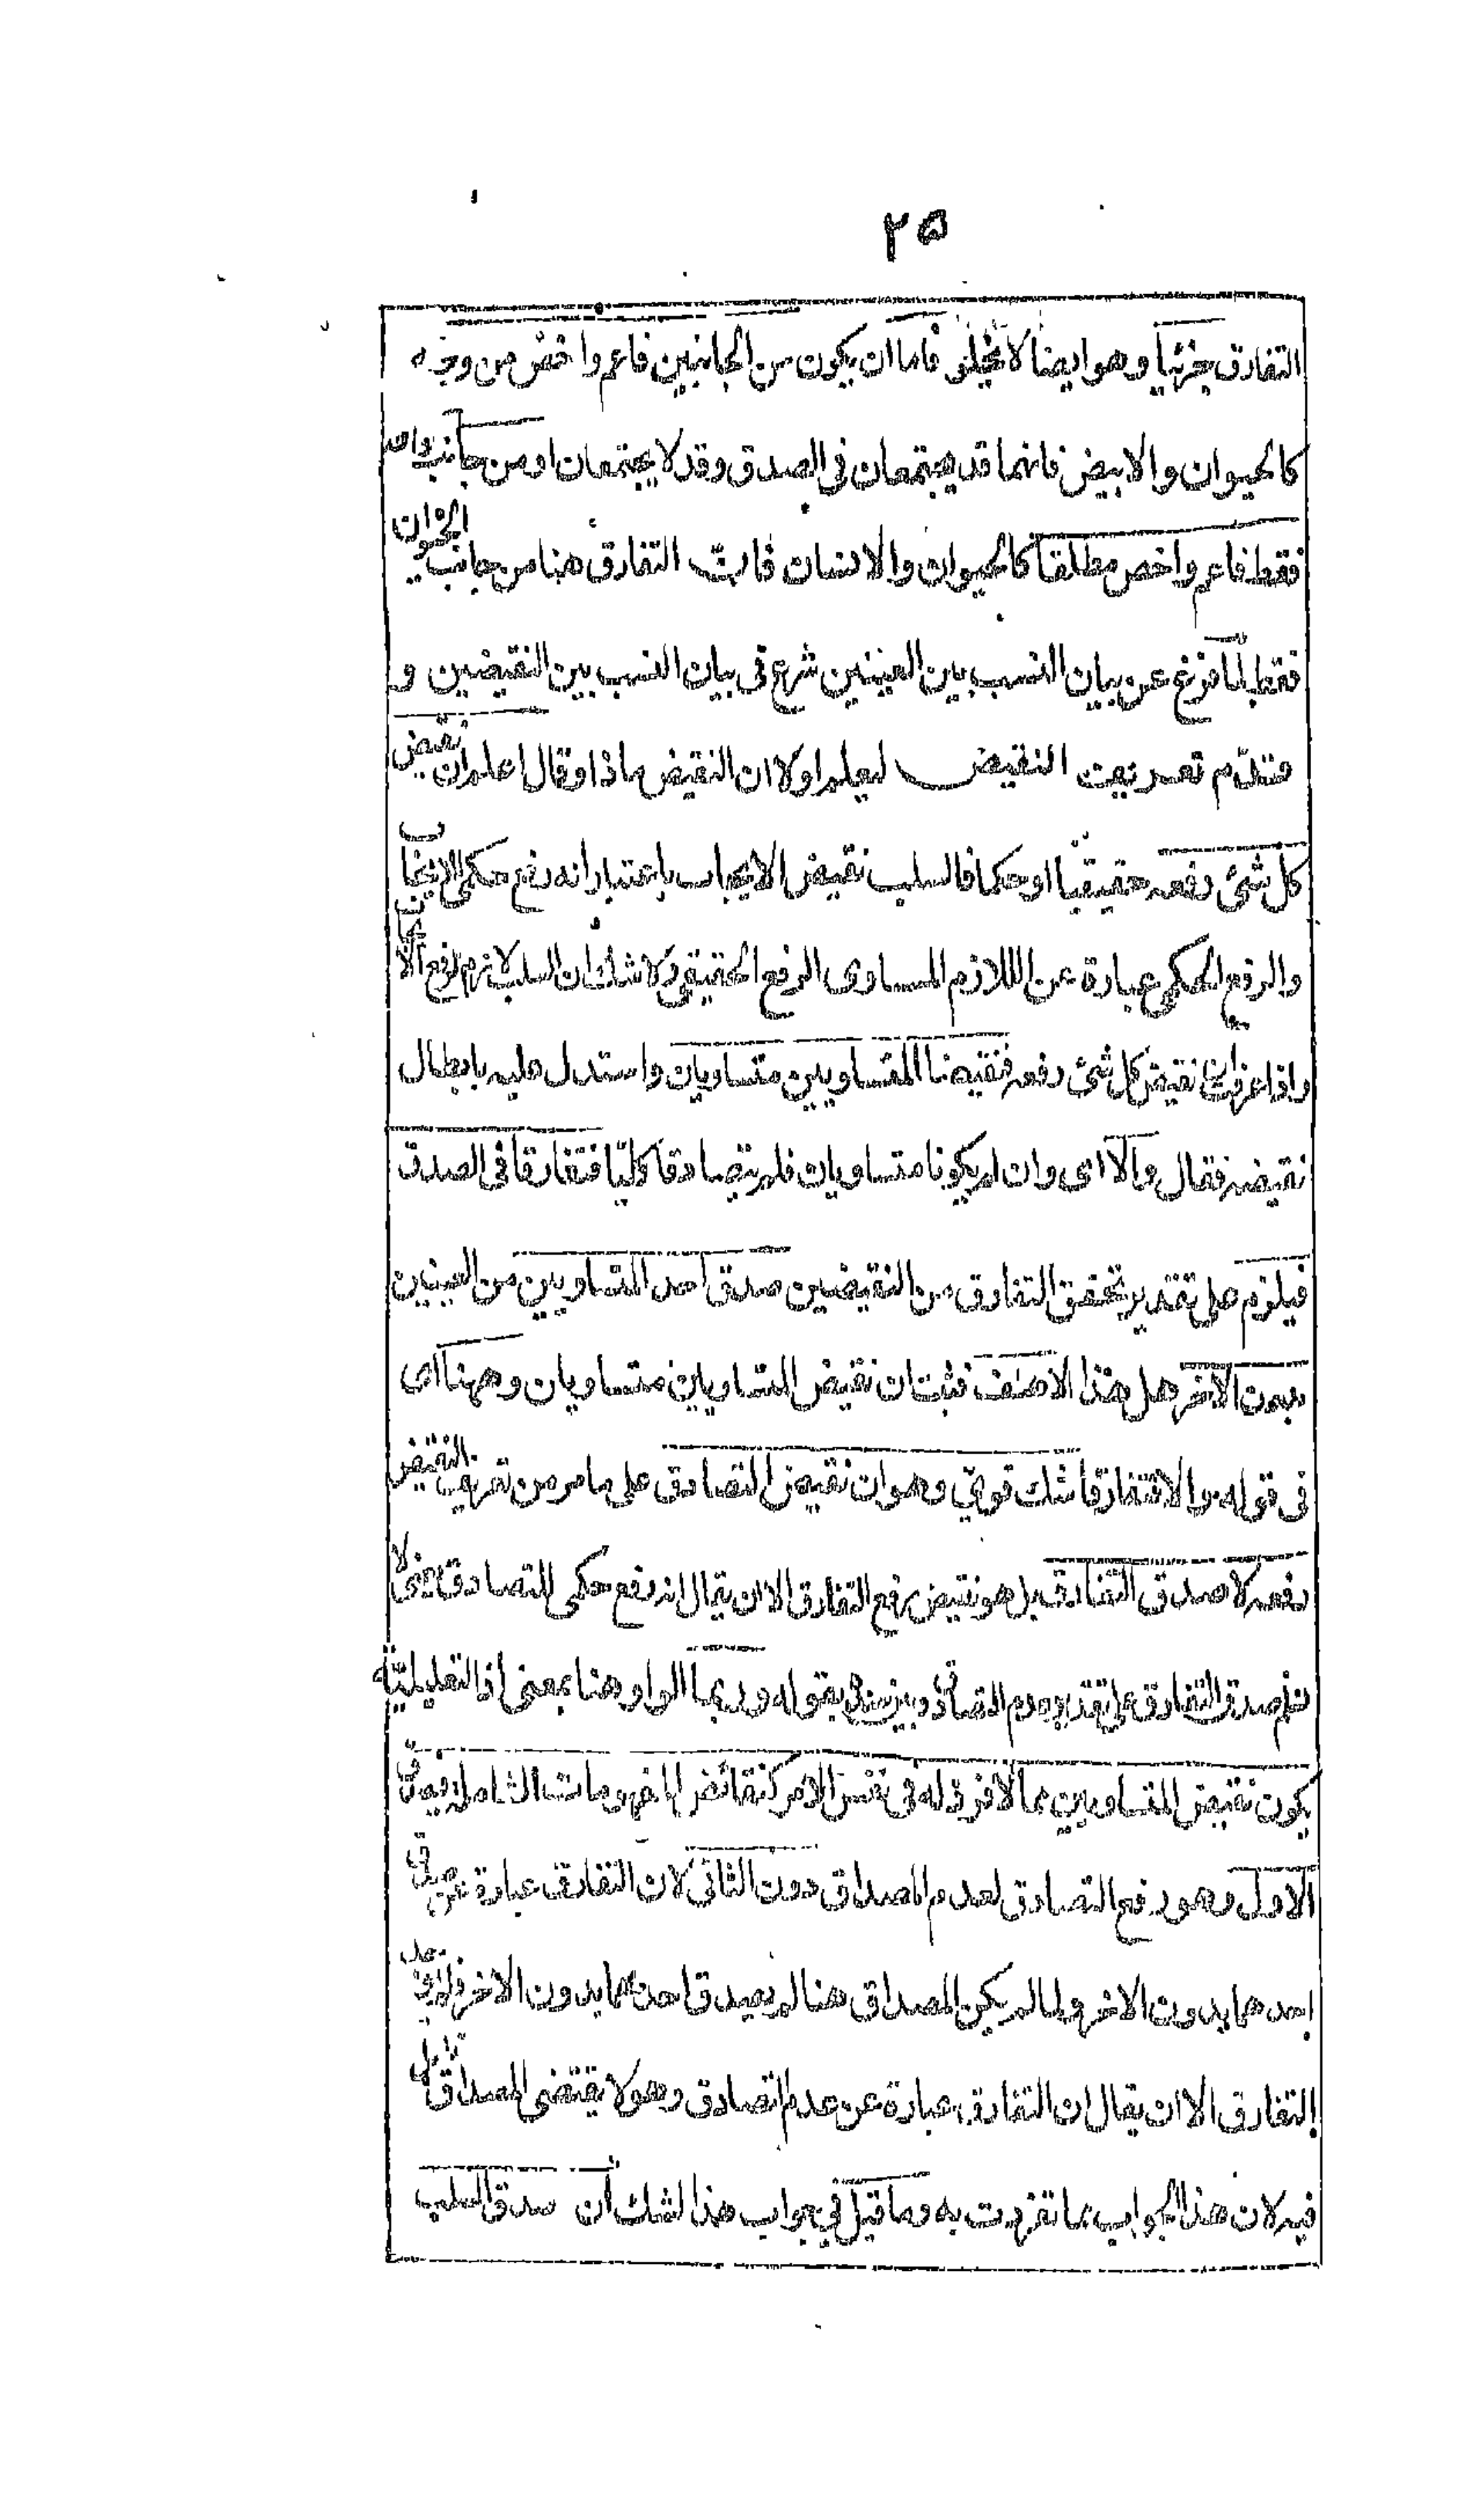 ٢۵
التفارق جزئيا وهو ايضا لا يخلو فاما ان يكون من الجانبين فاعم واخص من وجه
كالحيوان والابيض فانهما قد يجتمعان فى الصدق وقد لا يجتمعان او من جانب واحد
فقط فاعم واخص مطلقا كالحيوان والانسان فان التفارق هنا من جانب الحيوان
فقط لما فرغ عن بيان النسب بين العينين شرع فى بيان النسب بين النقيضين و
قدم تعريف النقيض ليعلم اولا ان النقيض ماذا وقال اعلم ان نقيض
كل شئ رفعه حقيقيا او حكما فالسلب نقيض الايجاب باعتبار انه رفع حكمى الايجاب
والرفع الحكمى عبارة عن اللازم المساوى الرفع الحقيقى ولا شك ان السلب لازم لرفع الايجاب
واذا عرفت ان نقيض كل شئ رفعه فنقيضا المتساويين متساويان واستدل عليه بابطال
نقيضه فقال والا اى وان لم يكونا متساويان فلم يتصادقا كليا فتفارقا فى الصدق
فيلزم على تقدير تحقق التفارق من النقيضين صدق احد المتساويين من العينين
بدون الاخر هل هذا الا خلف فثبت ان نقيض المتساويين متساويان وههنا اى
فى قوله والا لتفارقا شك قوى وهو ان نقيض التصادق على ما مر من تعريف النقيض
رفعه لا صدق التفارق بل هو نقيض رفع التفارق الا ان يقال انه رفع حكمى للتصادق
صدق التفارق على تقدير عدم التصادق بقوله وربما الواو هنا بمعنى اذ التعليلية
يكون نقيض المتساويين مما لا فرد له فى نفس الامر كنقائض المفهومات الشاملة فيصدق
الاول وهو رفع التصادق لعدم المصداق دون الثانى لان التفارق عبارة عن صدق
احدهما بدون الاخر ولما لم يكن المصداق هنا لم يصدق احدهما بدون الاخر فلم يوجد
التفارق الا ان يقال ان التفارق عبارة عن عدم التصادق وهو لا يقتضى المصداق تأمل
فيه لان هذا الجواب مما تفردت به وما قيل فى جواب هذا الشك ان صدق السلب